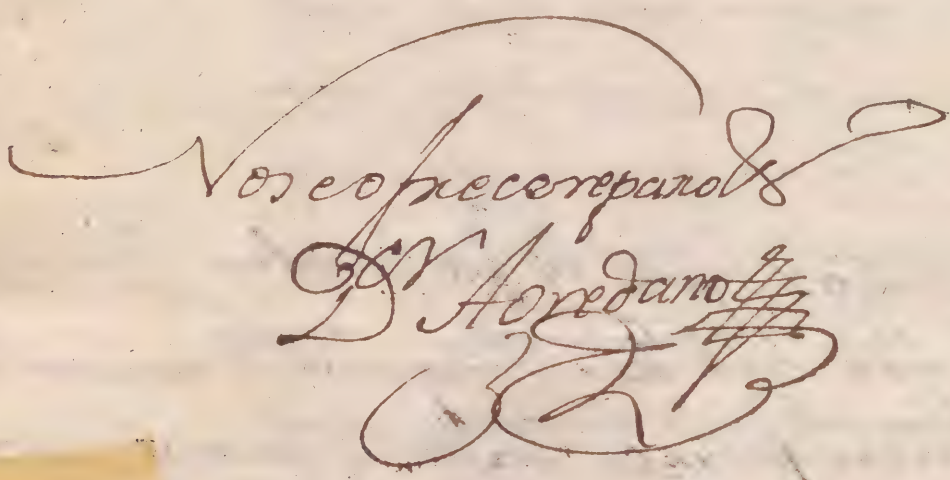 No se ofrece reparo
Dor Aoredano